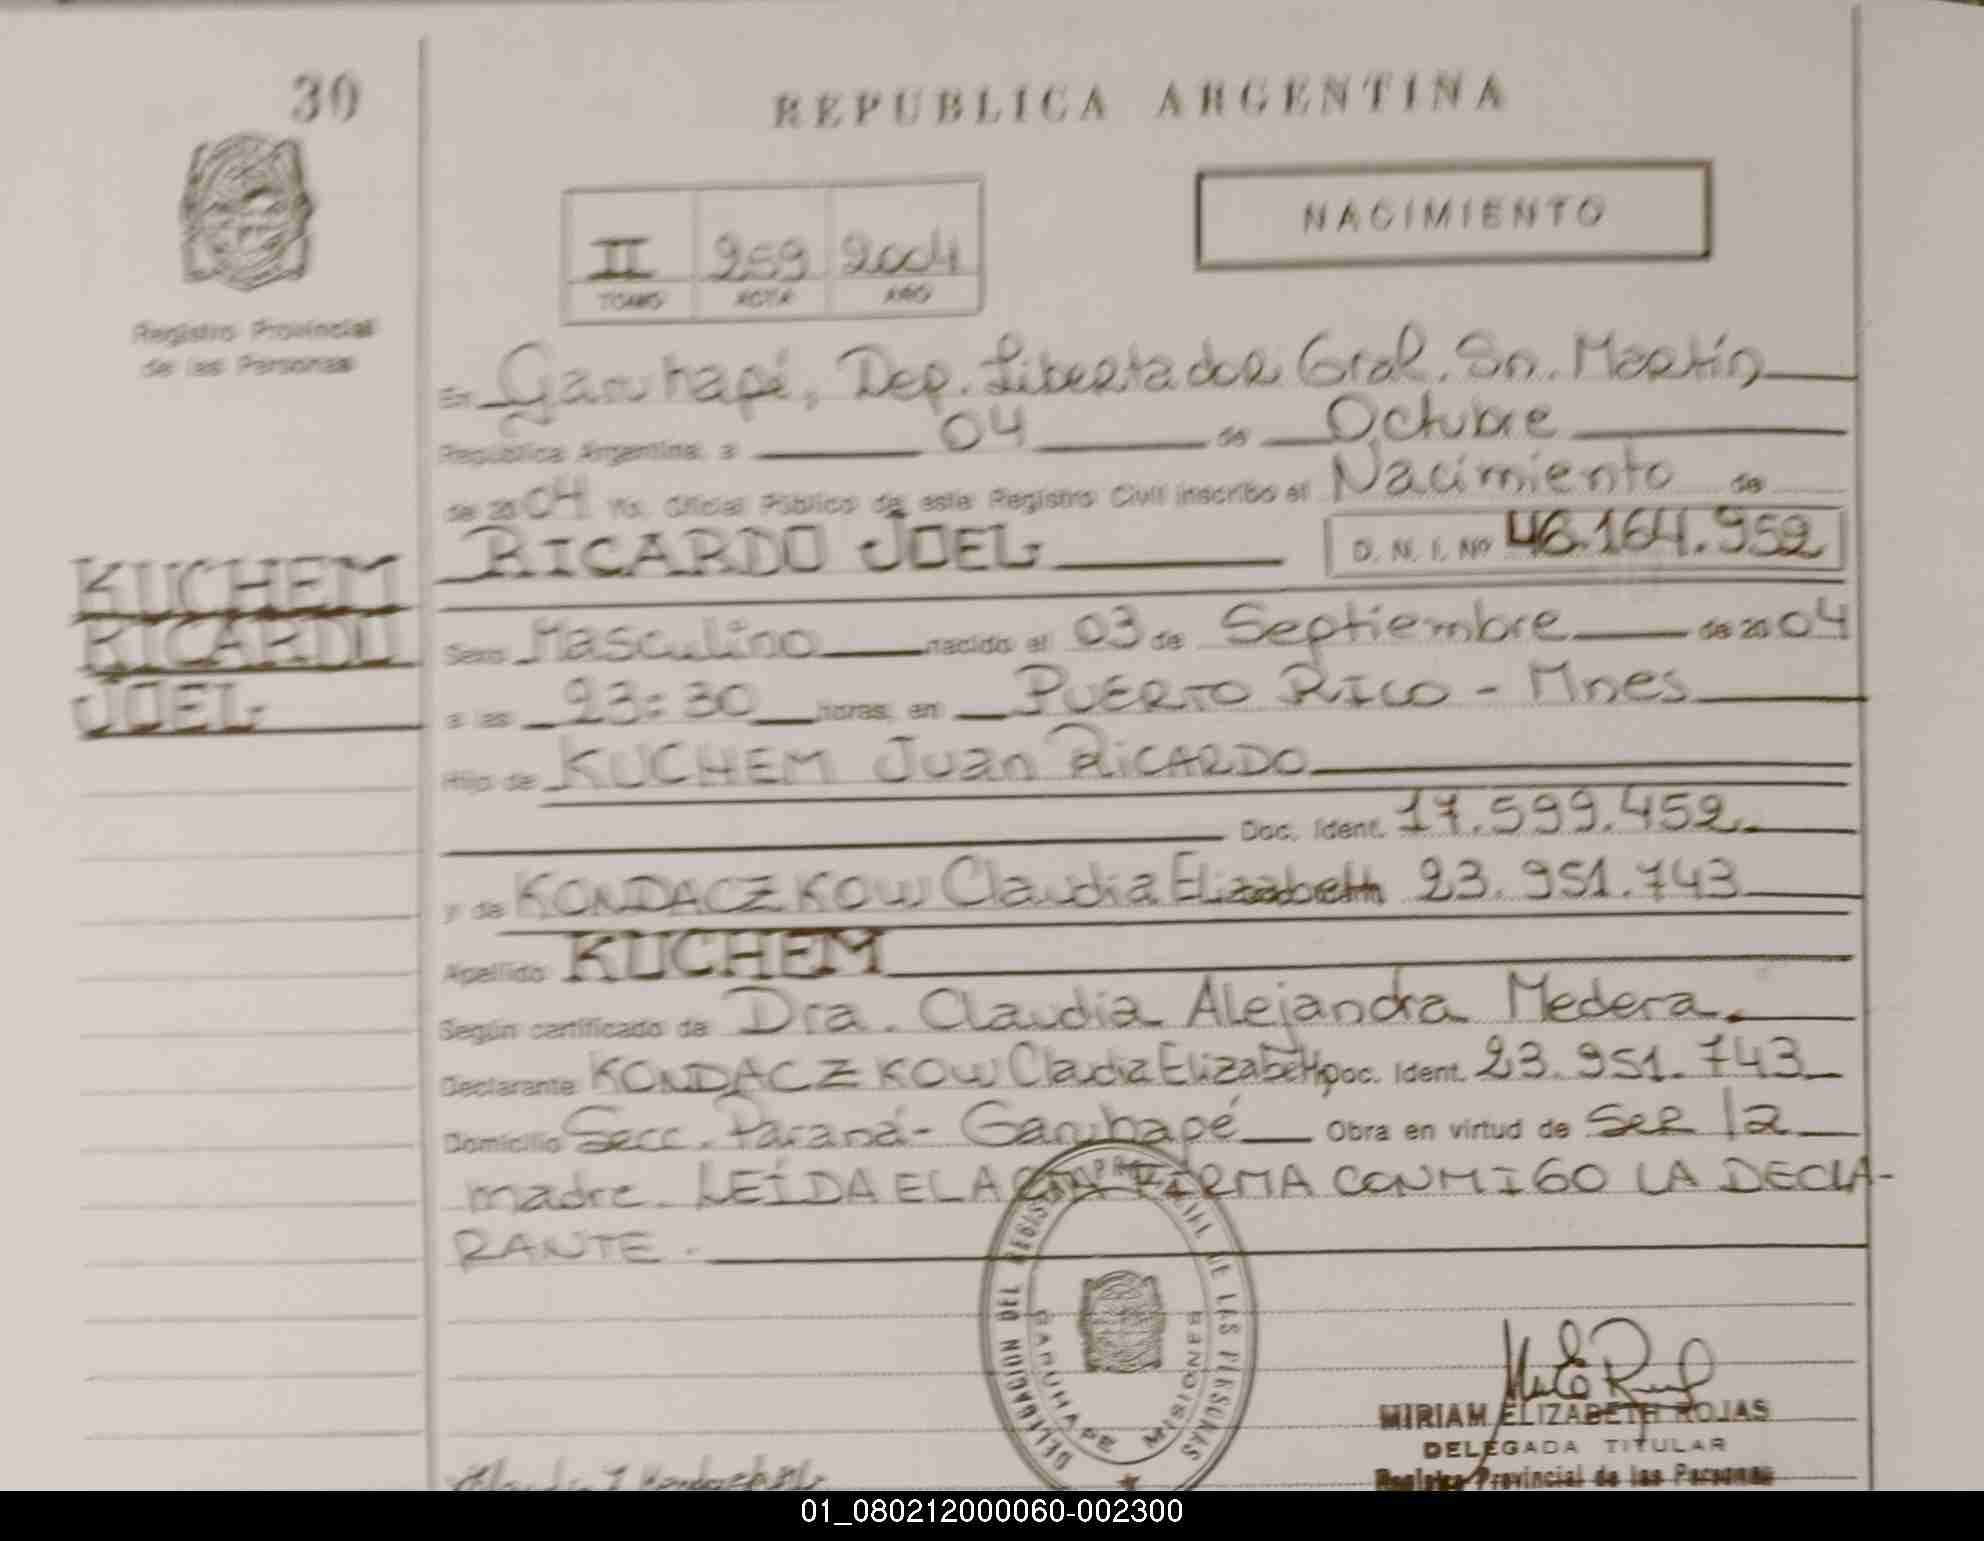 30
REPUBLICA ARGENTINA
NACIMIENTO
II 259 2004
TOMO ACTA AÑO
Registro Provincial
de las Personas
En Garuhapé, Dep. Libertador Gral. Sn. Martín
República Argentina, a 04 de Octubre
de 2004 Yo, Oficial Público de este Registro Civil inscribo el Nacimiento de
RICARDO JOEL D. N. I. Nº 46.164.952
KUCHEM
RICARDO
JOEL
Sexo Masculino nacido el 03 de Septiembre de 2004
a las 23:30 horas, en PUERTO RICO - Mnes
Hijo de KUCHEM Juan RICARDO
Doc. Ident. 17.599.452
y de KONDACZKOW Claudia Elizabeth 23.951.743
Apellido KUCHEM
Según certificado de Dra. Claudia Alejandra Medera
Declarante KONDACZKOW Claudia Elizabeth Doc. Ident. 23.951.743
Domicilio Secc. Paraná - Garuhapé Obra en virtud de SER la
madre. LEÍDA EL ACTA FIRMA CONMIGO LA DECLA-
RANTE.
DELEGACION DEL REGISTRO PROVINCIAL DE LAS PERSONAS
GARUHAPE MISIONES
MIRIAM ELIZABETH ROJAS
DELEGADA TITULAR
Registro Provincial de las Personas
01_080212000060-002300